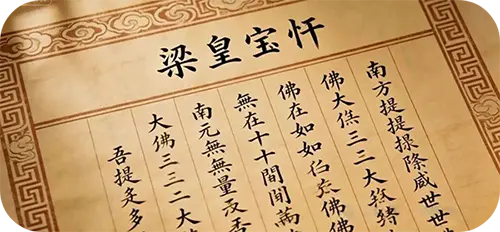 梁皇宝忏
南方提提除咸世世
佛大三三大
佛在如如佛佛
無在十十間間萬
南元無無量及否
大佛三三二大
吾提是多